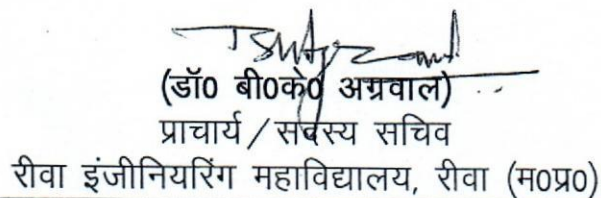 (डॉ0 बी0के0 अग्रवाल)
प्राचार्य / सदस्य सचिव
रीवा इंजीनियरिंग महाविद्यालय, रीवा (म0प्र0)